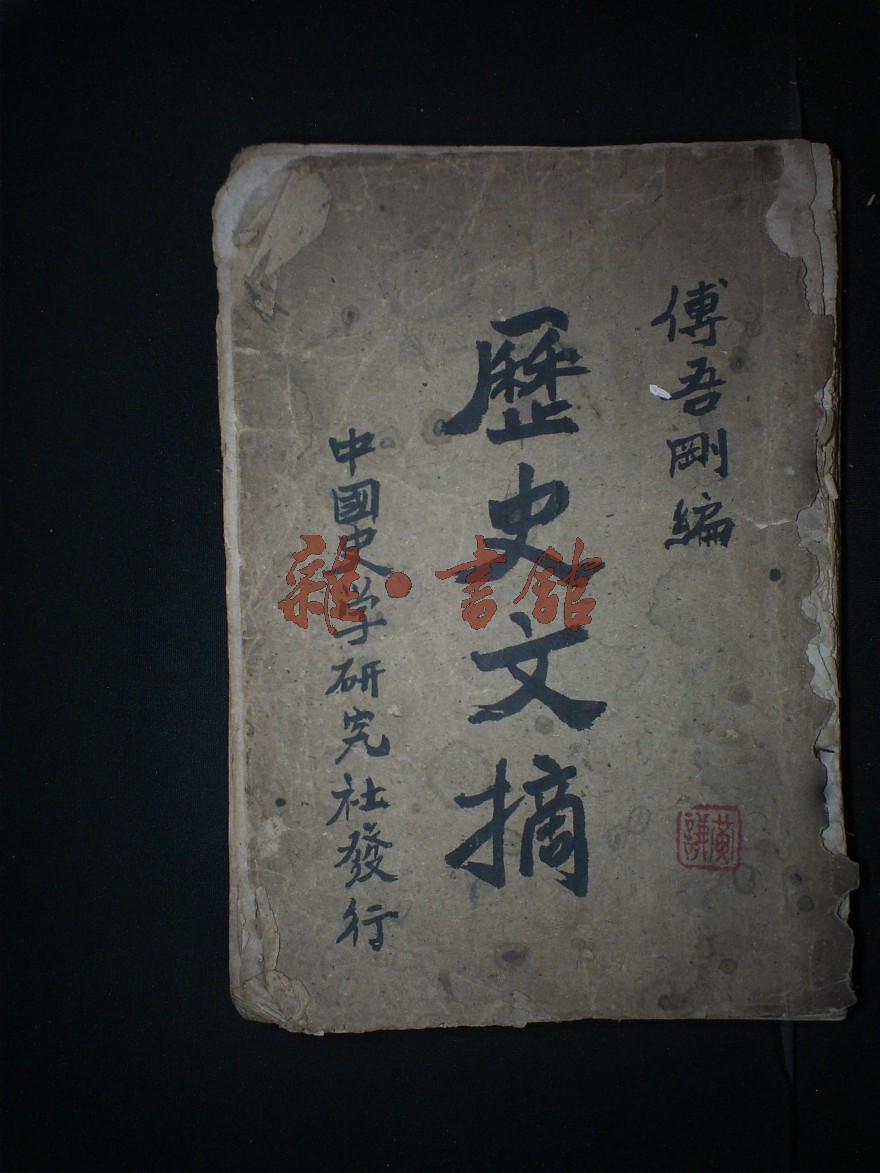 傅吾剛編
歷史文摘
中國史学研究社發行
雜·書館
黄謙